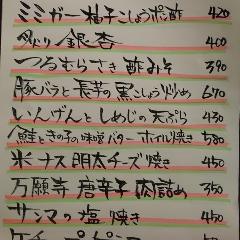 ミミガー柚子こしょうポン酢 420
炙り銀杏 400
つるむらさき酢みそ 390
豚バラと長芋の黒こしょう炒め 670
いんげんとしめじの天ぷら 450
鮭ときのこの味噌バターホイル焼き 580
米ナス明太チーズ焼き 450
万願寺唐辛子肉詰め 350
サンマの塩焼き 450